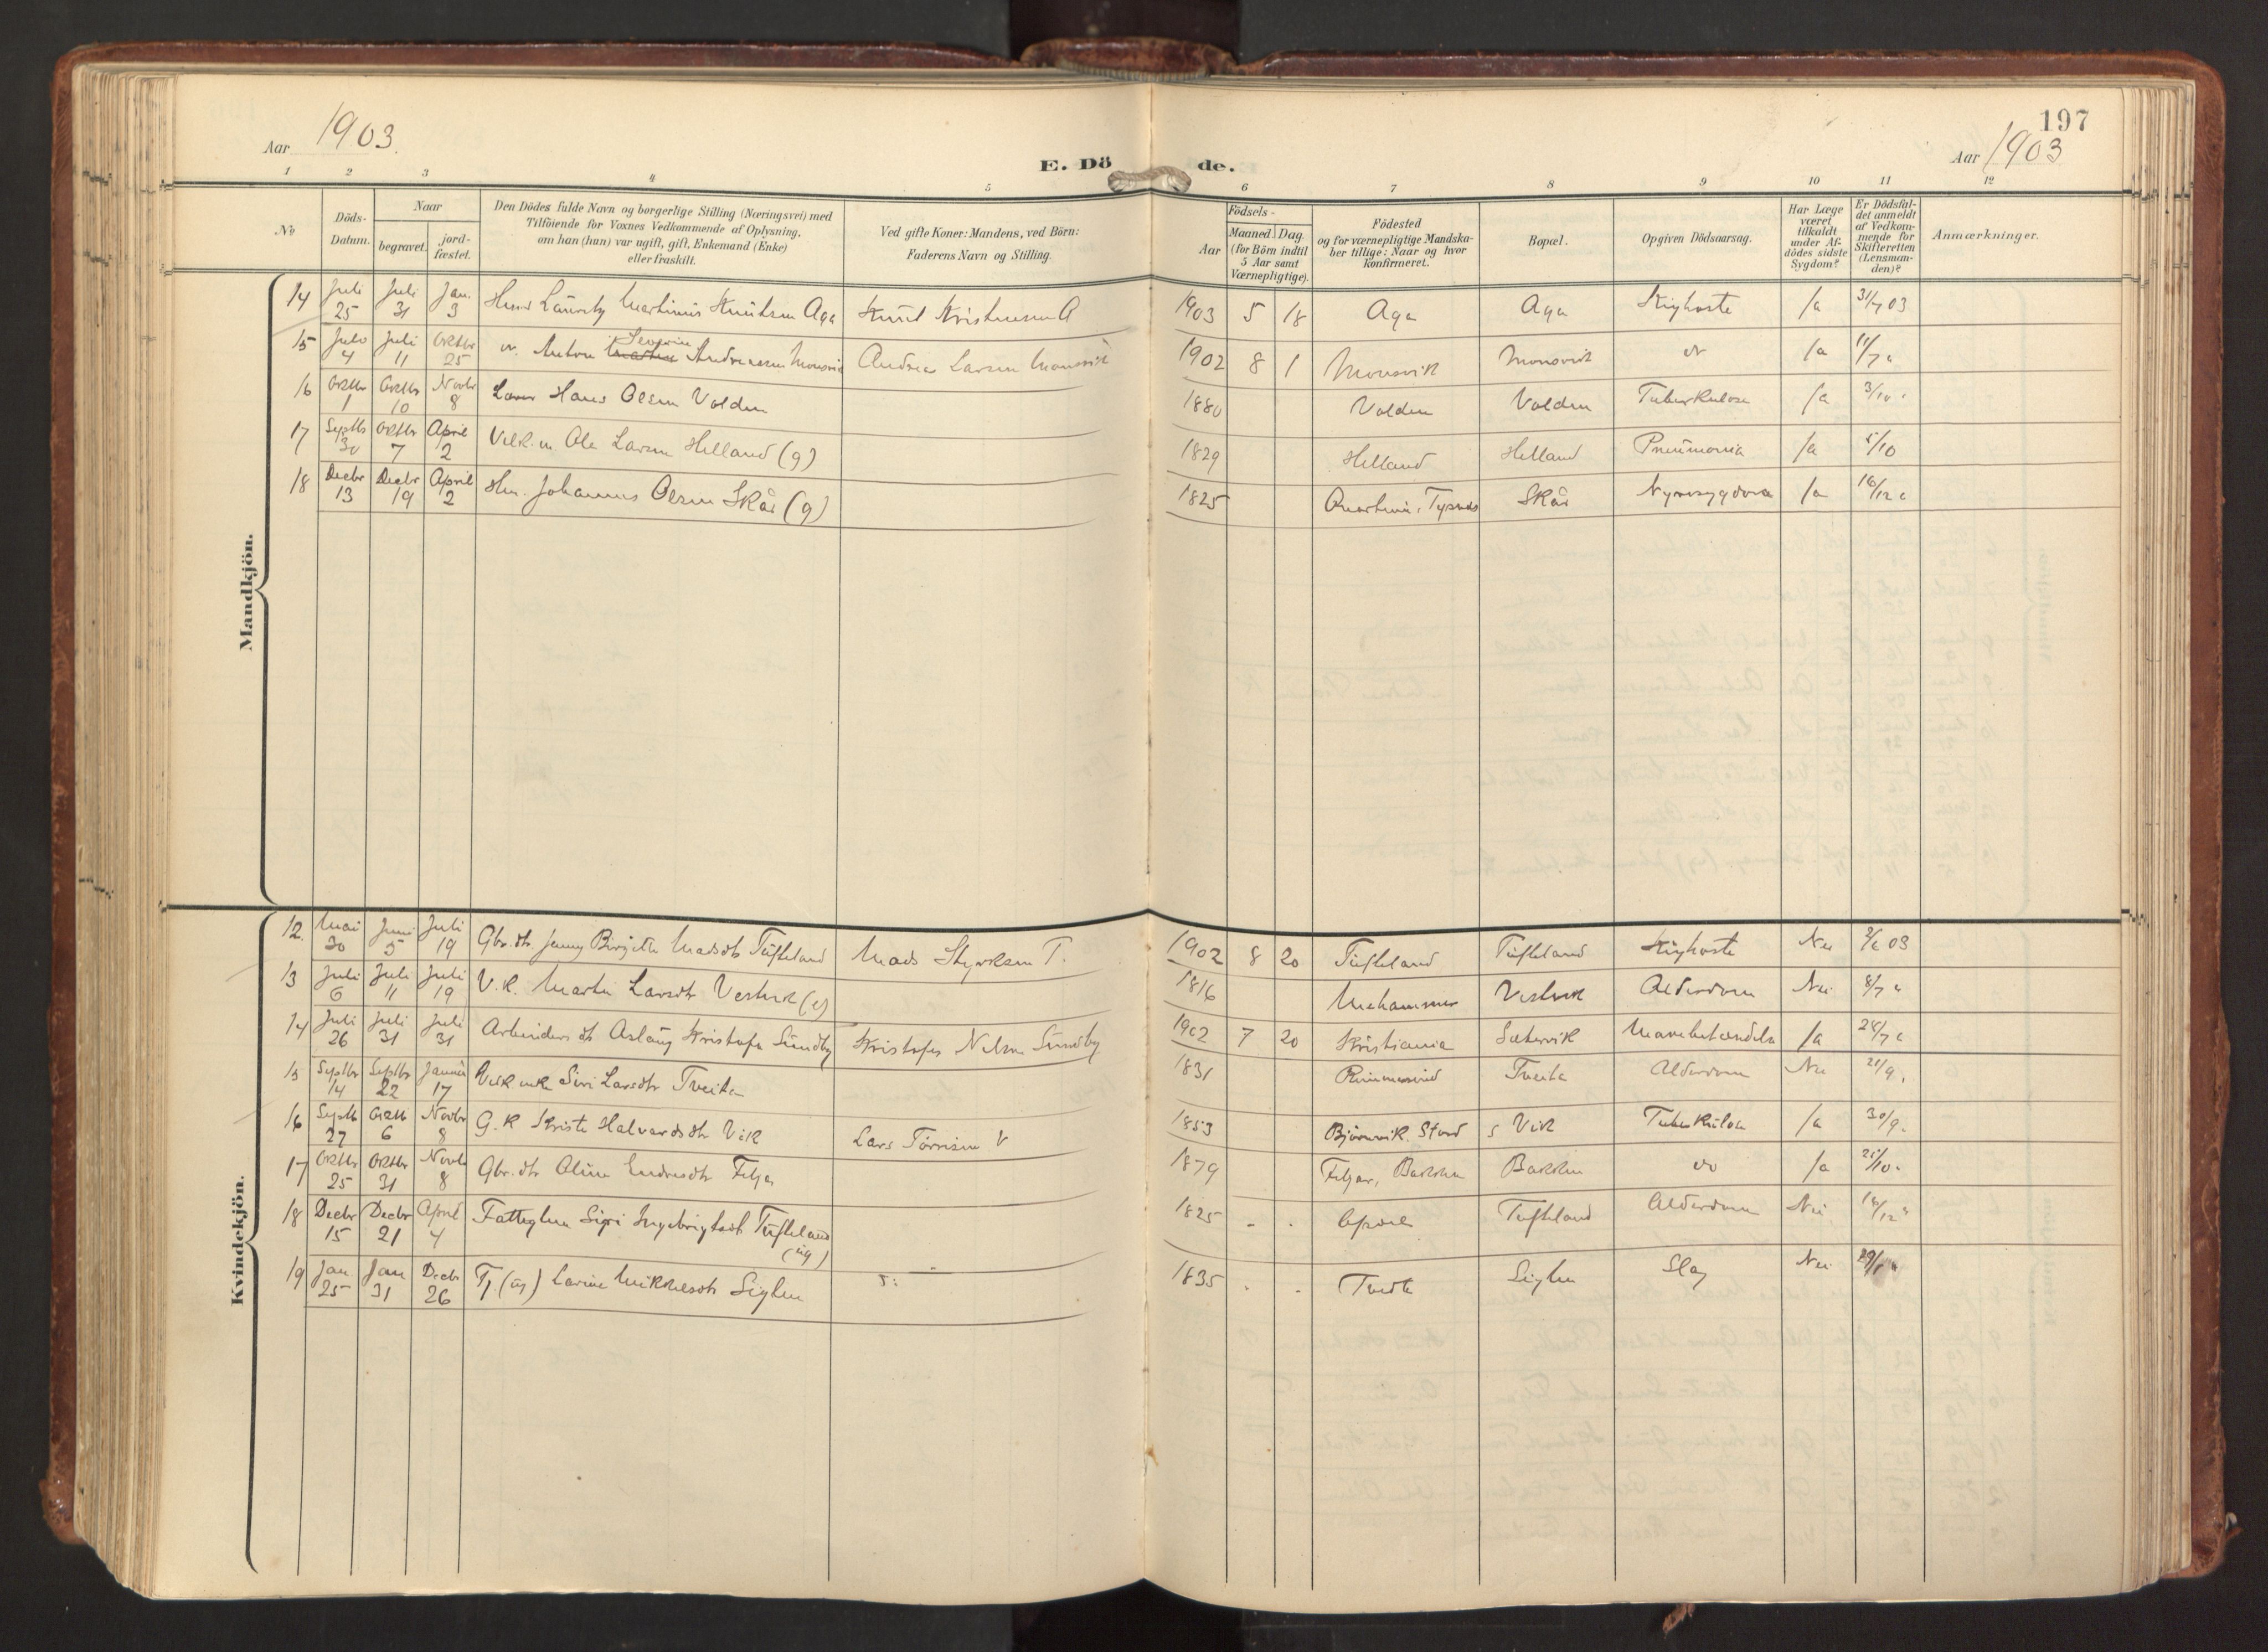 197
Aar 1903.
E. Dö de.
Aar 1903
1 2 3 4 5 6 7 8 9 10 11 12
No
Döds-
Datum.
Naar
begravet.
jord-
fæstet.
Den Dödes fulde Navn og borgerlige Stilling (Næringsvei) med
Tilföiende for Voxnes Vedkommende af Oplysning,
om han (hun) var ugift, gift, Enkemand (Enke)
eller fraskilt.
Ved gifte Koner: Mandens, ved Börn:
Faderens Navn og Stilling.
Födsels-
Aar
Maaned. Dag.
(for Börn indtil
5 Aar samt
Værnepligtige).
Födested
og for værnepligtige Mandska-
ber tillige: Naar og hvor
konfirmeret.
Bopæl.
Opgiven Dödsaarsag.
Har Læge
været
tilkaldt
under Af-
dödes sidste
Sygdom?
Er Dödsfal-
det anmeldt
af Vedkom-
mende for
Skifteretten
(Lensman-
den)?
Anmærkninger.
Mandkjön.
14 Juli 25 Juli 31 Jan. 3 Lauritz Martinius Knutsen Aga Knut Kristensen A 1903 5 18 Aga Aga Kighoste Ja 31/7 03
15 Juli 4 Juli 11 Oktbr 25 Anton Severin Andreassen Monsvik Andreas Larsen Monsvik 1902 8 1 Monsvik Monsvik do Ja 11/7 "
16 Oktbr 1 Oktbr 10 Novbr 8 Hans Olsen Volden 1880 Volden Volden Tuberkulose Ja 3/10 "
17 Septbr 30 Oktbr 7 April 2 Ole Larsen Helland (g) 1829 Helland Helland Pneumonia Ja 5/10
18 Decbr 13 Decbr 19 April 2 Johannes Olsen Skår (g) 1825 Tysnes Skår Nyresygdom Ja 16/12 "
Kvindekjön.
12. Mai 30 Juni 5 Juli 19 Gbr. dtr. Jenny Birgitte Madsdtr Tufteland Mads Styrksen T. 1902 8 20 Tufteland Tufteland Kighoste Nei 2/6 03
13 Juli 6 Juli 11 Juli 19 V.K. Marta Larsdtr Vestvik (e) 1816 Mehammer Vestvik Alderdom Nei 8/7 "
14 Juli 26 Juli 31 Juli 31 Arbeiders dt Aslaug Kristofa Sundby Kristofer Nelsen Sundby 1902 7 20 Kristiania Sætervik Ja 28/7 "
15 Septbr 14 Septbr 22 Januar 17 Siri Larsdtr Tveita 1831 Tveita Alderdom Nei 21/9 "
16 Septb 27 Oktb 6 Novbr 8 G.K Kristi Halvardsdtr Vik Lars Tørrisen V 1853 Bjørnevik. Stord s Vik Tuberkulose Ja 30/9 "
17 Oktbr 25 Oktbr 31 Novb 8 Gbr. dtr Oline Endresdtr Fitjar 1879 Fitjar, Bakken Bakken do Ja 25/10 "
18 Decbr 15 Decbr 21 April 4 Fattiglem Siri Ingebrigtsdt Tufteland (ug) 1825 - . Tufteland Alderdom Nei 16/12 "
19 Jan 25 Jan 31 Decb 26 Tj. (ug) Larine Mikkelsdtr Siglen 1835 . . Tveita Siglen Slag Nei 29/1 "